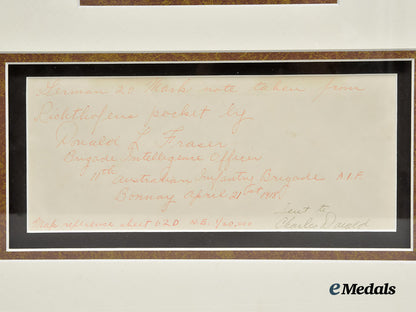 German 20 Mark note taken from
Richthofens pocket by
Donald L Fraser
Brigade Intelligence Officer
11th Australian Infantry Brigade A.I.F.
Bonnay April 21st 1918.
Map reference sheet 62D N.E. 1/20,000
Sent to
Charles Donald
eMedals